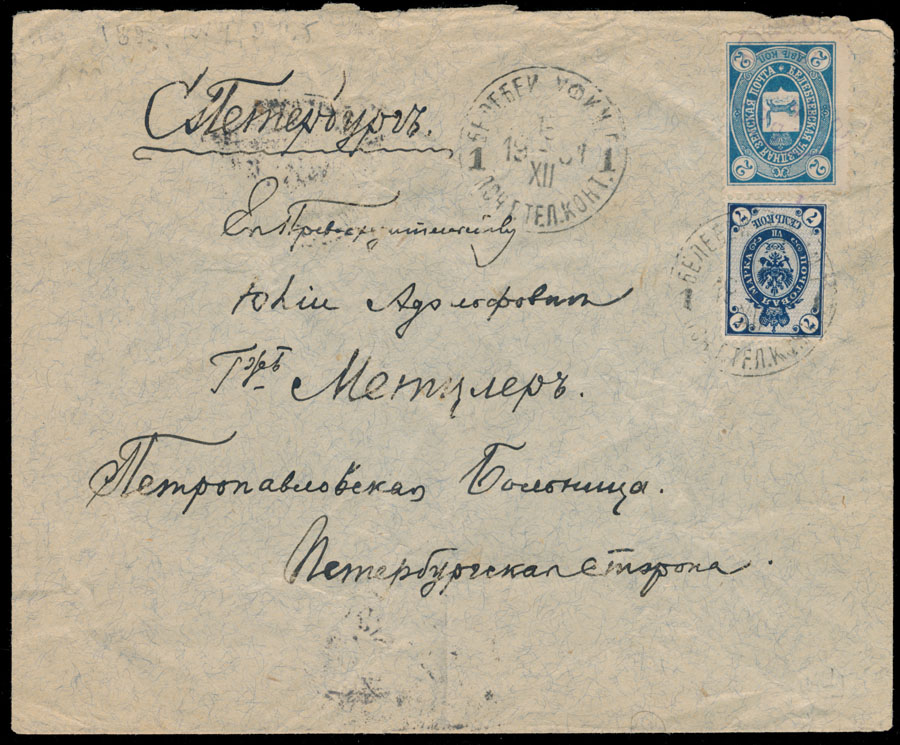 С Петербургъ.
Ея Превосходительству
Юліи Адольфовнѣ
Г-жѣ Метцлеръ.
Петропавловская Больница.
Петербургская сторона.
БЕЛЕБЕЙ УФИМ. Г.
1 5 1
XII
ПОЧ. Т ТЕЛ. КОНТ.
2 ДВѢ КОП. 2
БЕЛЕБЕЕВСКАЯ УѢЗДНАЯ ЗЕМСКАЯ ПОЧТА
2 2
7 СЕМЬ КОП. 7
ПОЧТОВАЯ МАРКА
7 7
БЕЛЕБ
1
Т ТЕЛ. К